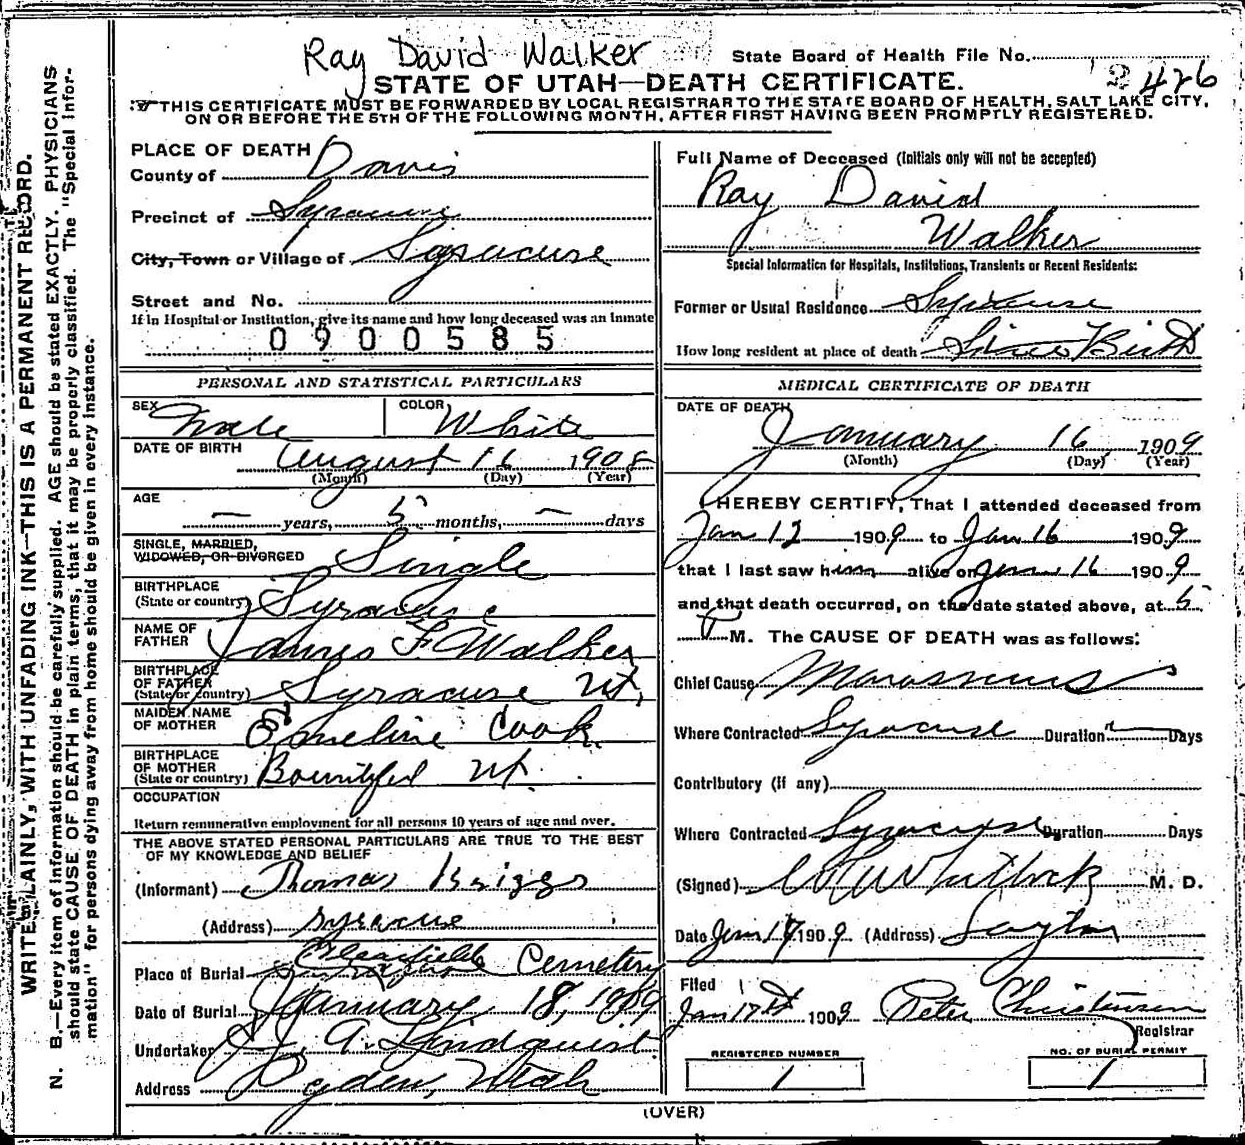 Ray David Walker
State Board of Health File No. 2 426
STATE OF UTAH—DEATH CERTIFICATE.
THIS CERTIFICATE MUST BE FORWARDED BY LOCAL REGISTRAR TO THE STATE BOARD OF HEALTH, SALT LAKE CITY,
ON OR BEFORE THE 5TH OF THE FOLLOWING MONTH, AFTER FIRST HAVING BEEN PROMPTLY REGISTERED.
WRITE PLAINLY, WITH UNFADING INK—THIS IS A PERMANENT RECORD.
N. B.—Every item of information should be carefully supplied. AGE should be stated EXACTLY. PHYSICIANS
should state CAUSE OF DEATH in plain terms, that it may be properly classified. The "Special Infor-
mation" for persons dying away from home should be given in every instance.
PLACE OF DEATH
County of Davis
Precinct of Syracuse
City, Town or Village of Syracuse
Street and No.
If in Hospital or Institution, give its name and how long deceased was an inmate
0900585
PERSONAL AND STATISTICAL PARTICULARS
SEX Male COLOR White
DATE OF BIRTH August 16 1908
(Month) (Day) (Year)
AGE
— years, 5 months, — days
SINGLE, MARRIED,
WIDOWED, OR DIVORCED Single
BIRTHPLACE
(State or country) Syracuse
NAME OF
FATHER James F. Walker
BIRTHPLACE
OF FATHER
(State or country) Syracuse Ut.
MAIDEN NAME
OF MOTHER Emeline Cook.
BIRTHPLACE
OF MOTHER
(State or country) Bountiful Ut.
OCCUPATION
Return remunerative employment for all persons 10 years of age and over.
THE ABOVE STATED PERSONAL PARTICULARS ARE TRUE TO THE BEST
OF MY KNOWLEDGE AND BELIEF
(Informant) Thomas Briggs
(Address) Syracuse
Clearfield
Place of Burial Cemetery
Date of Burial January 18, 1909
Undertaker J. A. Lindquist
Address Ogden, Utah
Full Name of Deceased (Initials only will not be accepted)
Ray David
Walker
Special Information for Hospitals, Institutions, Transients or Recent Residents:
Former or Usual Residence Syracuse
How long resident at place of death Since Birth
MEDICAL CERTIFICATE OF DEATH
DATE OF DEATH
January 16 1909
(Month) (Day) (Year)
I HEREBY CERTIFY, That I attended deceased from
Jan 12 1909 to Jan 16 1909
that I last saw him alive on Jan 16 1909
and that death occurred, on the date stated above, at 5
M. The CAUSE OF DEATH was as follows:
Chief Cause Marasmus
Where Contracted Syracuse Duration — Days
Contributory (if any)
Where Contracted Syracuse Duration Days
(Signed) Whitlock M. D.
Date Jan 1909 (Address) Layton
Filed
Jan 17th 1909 Peter Christensen
Registrar
REGISTERED NUMBER
1
NO. OF BURIAL PERMIT
1
(OVER)